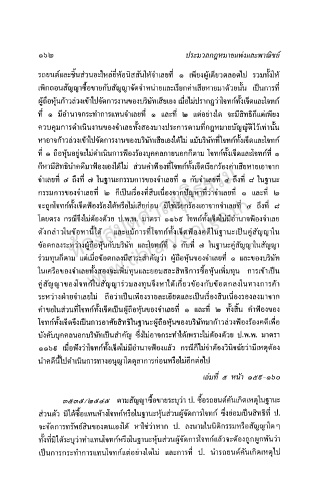 ๑๖๒ ประมวลกฎหมายแพ่งและพาณิชย์
รถยนต์และชิ้นส่วนอะไหล่ยี่ห้อนิสสันให้จำเลยที่ ๑ เพียงผู้เดียวตลอดไป รวมทั้งให้
เพิกถอนสัญญาซื้อขายกับสัญญาจัดจำหน่ายและเรียกค่าเสียหายมาด้วยนั้น เป็นการที่
ผู้ถือหุ้นก้าวล่วงเข้าไปจัดการงานของบริษัทเสียเอง เมื่อไม่ปรากฏว่าโจทก์ทั้งเจ็ดและโจทก์
ที่ ๑ มีอำนาจกระทำการแทนจำเลยที่ ๑ และที่ ๒ แต่อย่างใด จะมีสิทธิก็แต่เพียง
ควบคุมการดำเนินงานของจำเลยทั้งสองบางประการตามที่กฎหมายบัญญัติไว้เท่านั้น
หาอาจก้าวล่วงเข้าไปจัดการงานของบริษัทเสียเองได้ไม่ แม้บริษัทที่โจทก์ทั้งเจ็ดและโจทก์
ที่ ๑ ถือหุ้นอยู่จะไม่ดำเนินการฟ้องร้องบุคคลภายนอกก็ตาม โจทก์ทั้งเจ็ดและโจทก์ที่ ๑
ก็หามีสิทธินำคดีมาฟ้องเองได้ไม่ ส่วนคำฟ้องที่โจทก์ทั้งเจ็ดเรียกร้องค่าเสียหายเอาจาก
จำเลยที่ ๔ ถึงที่ ๗ ในฐานะกรรมการของจำเลยที่ ๑ กับจำเลยที่ ๔ ถึงที่ ๘ ในฐานะ
กรรมการของจำเลยที่ ๒ ก็เป็นเรื่องที่สืบเนื่องจากปัญหาที่ว่าจำเลยที่ ๑ และที่ ๒
จะถูกโจทก์ทั้งเจ็ดฟ้องร้องได้หรือไม่เสียก่อน มิใช่เรียกร้องเอาจากจำเลยที่ ๔ ถึงที่ ๘
โดยตรง กรณีจึงไม่ต้องด้วย ป.พ.พ. มาตรา ๑๑๖๙ โจทก์ทั้งเจ็ดไม่มีอำนาจฟ้องจำเลย
ดังกล่าวในข้อหานี้ได้ และแม้การที่โจทก์ทั้งเจ็ดฟ้องคดีในฐานะเป็นคู่สัญญาใน
ข้อตกลงระหว่างผู้ถือหุ้นกับบริษัท และโจทก์ที่ ๑ กับที่ ๗ ในฐานะคู่สัญญาในสัญญา
ร่วมทุนก็ตาม แต่เมื่อข้อตกลงมีสาระสำคัญว่า ผู้ถือหุ้นของจำเลยที่ ๑ และของบริษัท
ในเครือของจำเลยทั้งสองจะเพิ่มทุนและยอมสละสิทธิการซื้อหุ้นเพิ่มทุน การเข้าเป็น
คู่สัญญาของโจทก์ในสัญญาร่วมลงทุนจึงหาได้เกี่ยวข้องกับข้อตกลงในทางการค้า
ระหว่างฝ่ายจำเลยไม่ ถือว่าเป็นเพียงรายละเอียดและเป็นเรื่องสืบเนื่องรองลงมาจาก
คำขอในส่วนที่โจทก์ทั้งเจ็ดเป็นผู้ถือหุ้นของจำเลยที่ ๑ และที่ ๒ ทั้งสิ้น คำฟ้องของ
โจทก์ทั้งเจ็ดจึงเป็นการอาศัยสิทธิในฐานะผู้ถือหุ้นของบริษัทมาก้าวล่วงฟ้องร้องคดีเพื่อ
บังคับบุคคลนอกบริษัทเป็นสำคัญ ซึ่งไม่อาจกระทำได้เพราะไม่ต้องด้วย ป.พ.พ. มาตรา
๑๑๖๙ เมื่อฟังว่าโจทก์ทั้งเจ็ดไม่มีอำนาจฟ้องแล้ว กรณีก็ไม่จำต้องวินิจฉัยว่ามีเหตุต้อง
นำคดีนี้ไปดำเนินการทางอนุญาโตตุลาการก่อนหรือไม่อีกต่อไป
เล่มที่ ๕ หน้า ๑๕๙-๑๖๐
๓๕๓๗/๒๕๔๕ ตามสัญญาซื้อขายระบุว่า ป. ซื้อรถยนต์คันเกิดเหตุในฐานะ
ส่วนตัว มิได้ซื้อแทนห้างโจทก์หรือในฐานะหุ้นส่วนผู้จัดการโจทก์ ซึ่งย่อมเป็นสิทธิที่ ป.
จะจัดการทรัพย์สินของตนเองได้ หาใช่ว่าหาก ป. ลงนามในนิติกรรมหรือสัญญาใดๆ
ทั้งที่มิได้ระบุว่าทำแทนโจทก์หรือในฐานะหุ้นส่วนผู้จัดการโจทก์แล้วจะต้องถูกผูกพันว่า
เป็นการกระทำการแทนโจทก์แต่อย่างใดไม่ และการที่ ป. นำรถยนต์คันเกิดเหตุไป